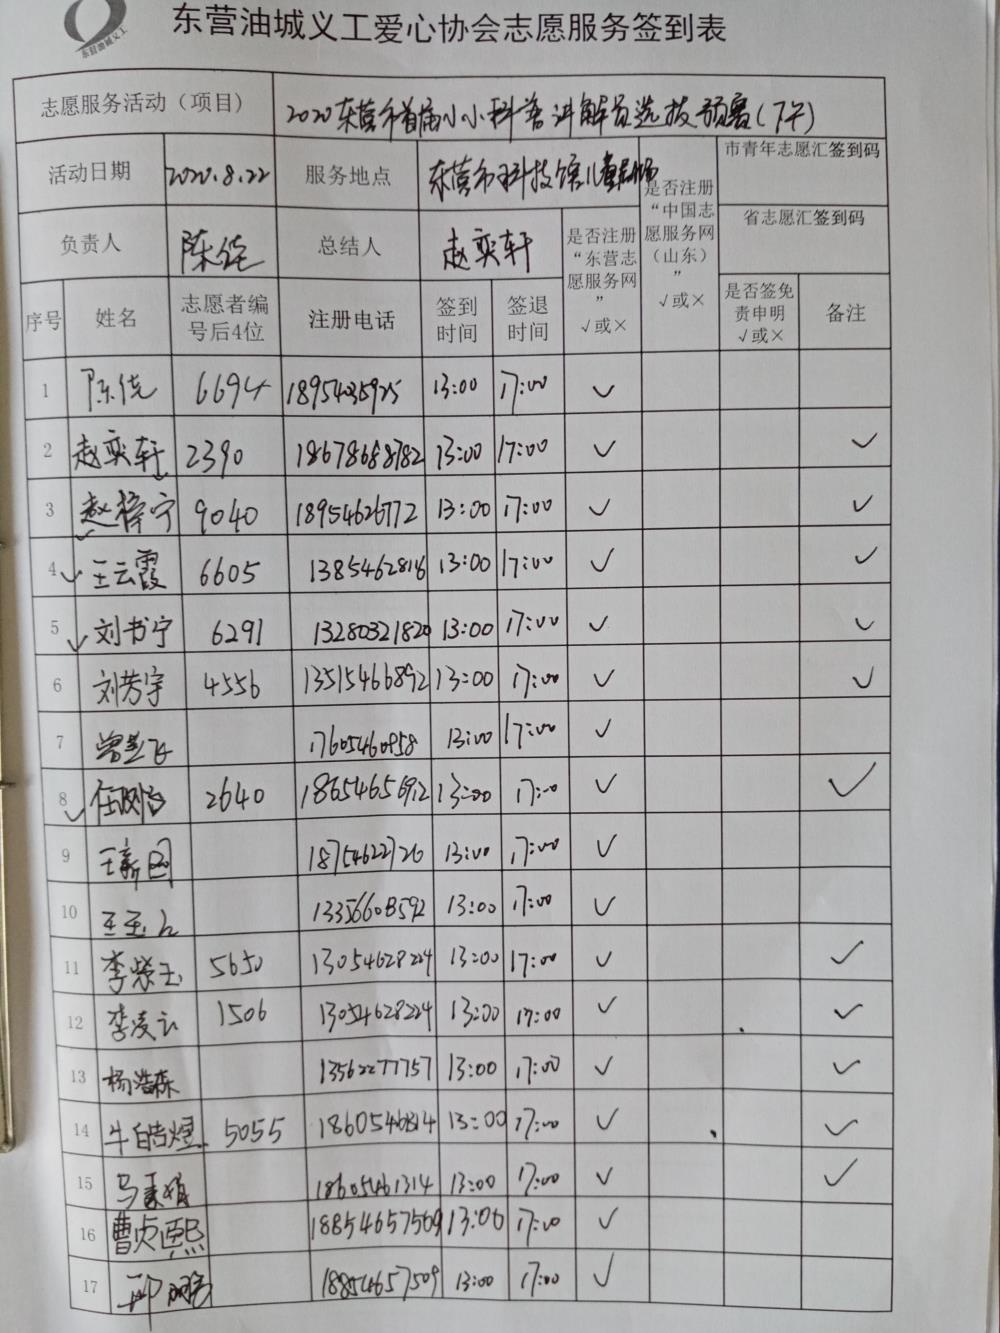 东营油城义工
东营油城义工爱心协会志愿服务签到表
志愿服务活动（项目） 2020东营市首届小小科普讲解员选拔预赛(下午)
活动日期 2020.8.22 服务地点 东营市科技馆儿童 市青年志愿汇签到码
负责人 陈 总结人 赵奕轩 是否注册“东营志愿服务网” √或× 是否注册“中国志愿服务网（山东）” √或× 省志愿汇签到码
序号 姓名 志愿者编号后4位 注册电话 签到时间 签退时间 是否签免责申明 √或× 备注
1 陈 6694 18954035925 13:00 17:00 ✓
2 赵奕轩 2390 18678688782 13:00 17:00 ✓ ✓
3 赵梓宁 9040 18954626772 13:00 17:00 ✓ ✓
4 王云霞 6605 13854628 13:00 17:00 ✓ ✓
5 刘书宁 6291 13280321820 13:00 17:00 ✓ ✓
6 刘芳宇 4556 13515466892 13:00 17:00 ✓ ✓
7 17605460958 13:00 17:00 ✓
8 任 2640 18654656912 13:00 17:00 ✓ ✓
9 王新国 13:00 17:00 ✓
10 王玉 13356608592 13:00 17:00 ✓
11 李荣玉 5650 13054628224 13:00 17:00 ✓ ✓
12 李凌云 1506 13054628224 13:00 17:00 ✓ ✓
13 杨浩森 13562277757 13:00 17:00 ✓ ✓
14 牛皓煜 5055 13:00 17:00 ✓ ✓
15 马 18605461314 13:00 17:00 ✓ ✓
16 曹贞熙 18854657509 13:00 17:00 ✓
17 邱鹏 18854657509 13:00 17:00 ✓